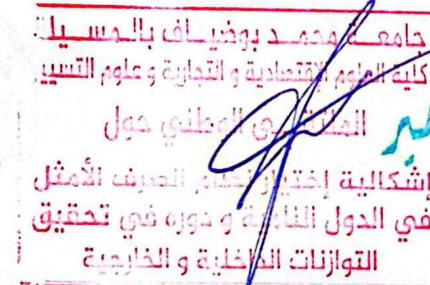 جامعة محمد بوضياف بالمسيلة
كلية العلوم الإقتصادية و التجارية و علوم التسيير
الملتقى الوطني حول
إشكالية إختيار نظام الصرف الأمثل
في الدول النامية و دوره في تحقيق
التوازنات الداخلية و الخارجية